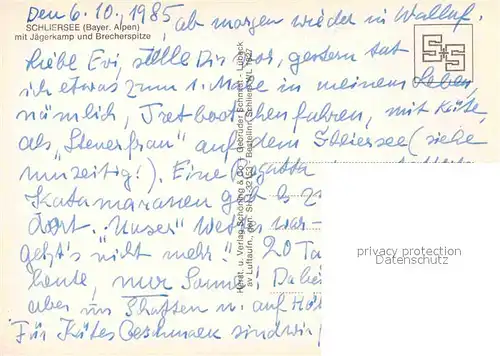 Den 6.10.1985, ab morgen wieder in Walluf.
SCHLIERSEE (Bayer. Alpen)
mit Jägerkamp und Brecherspitze
Liebe Evi, stelle Dir vor, gestern tat
ich etwas zum 1. Male in meinem Leben,
nämlich, Tretbootchenfahren, mit Käte,
als "Steuerfrau" auf dem Schliersee (siehe
umzeitig!). Eine Regatta
Katamaranen gab es
dort. "Unser" Wetter war
geht's nicht mehr! 20 Ta
heute, nur Sonne! Dabei
aber im Schatten u. auf Höh
Für Kätes Geschmack sind wir
Herst. u. Verlag Schöning & Co + Gebrüder Schmidt, Lübeck
privacy protection
Datenschutz